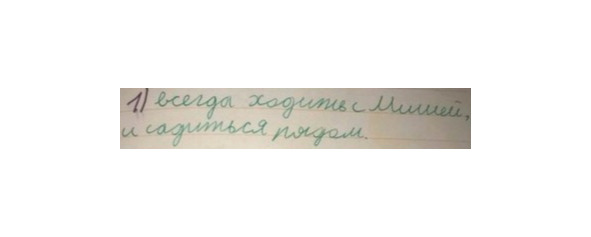 1) всегда ходить с Мишей,
и садиться рядом.